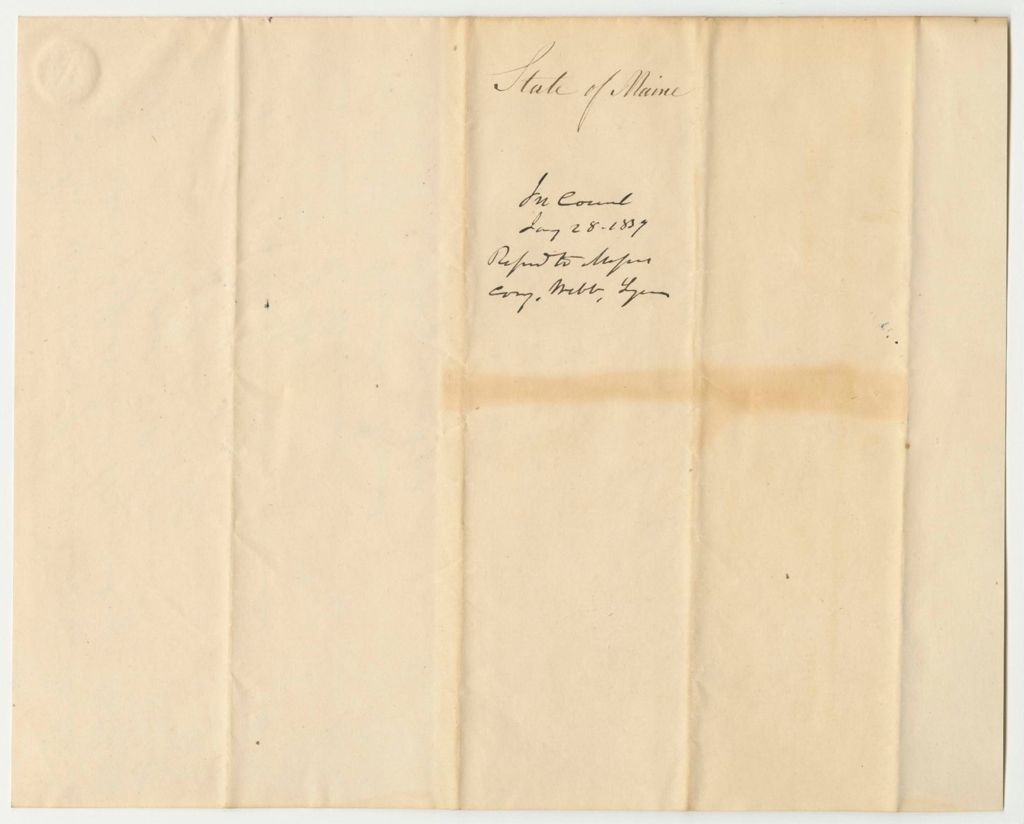 State of Maine
In Council
Jany 28-1839
Refered to Messrs
Cony, Webb, Lyon